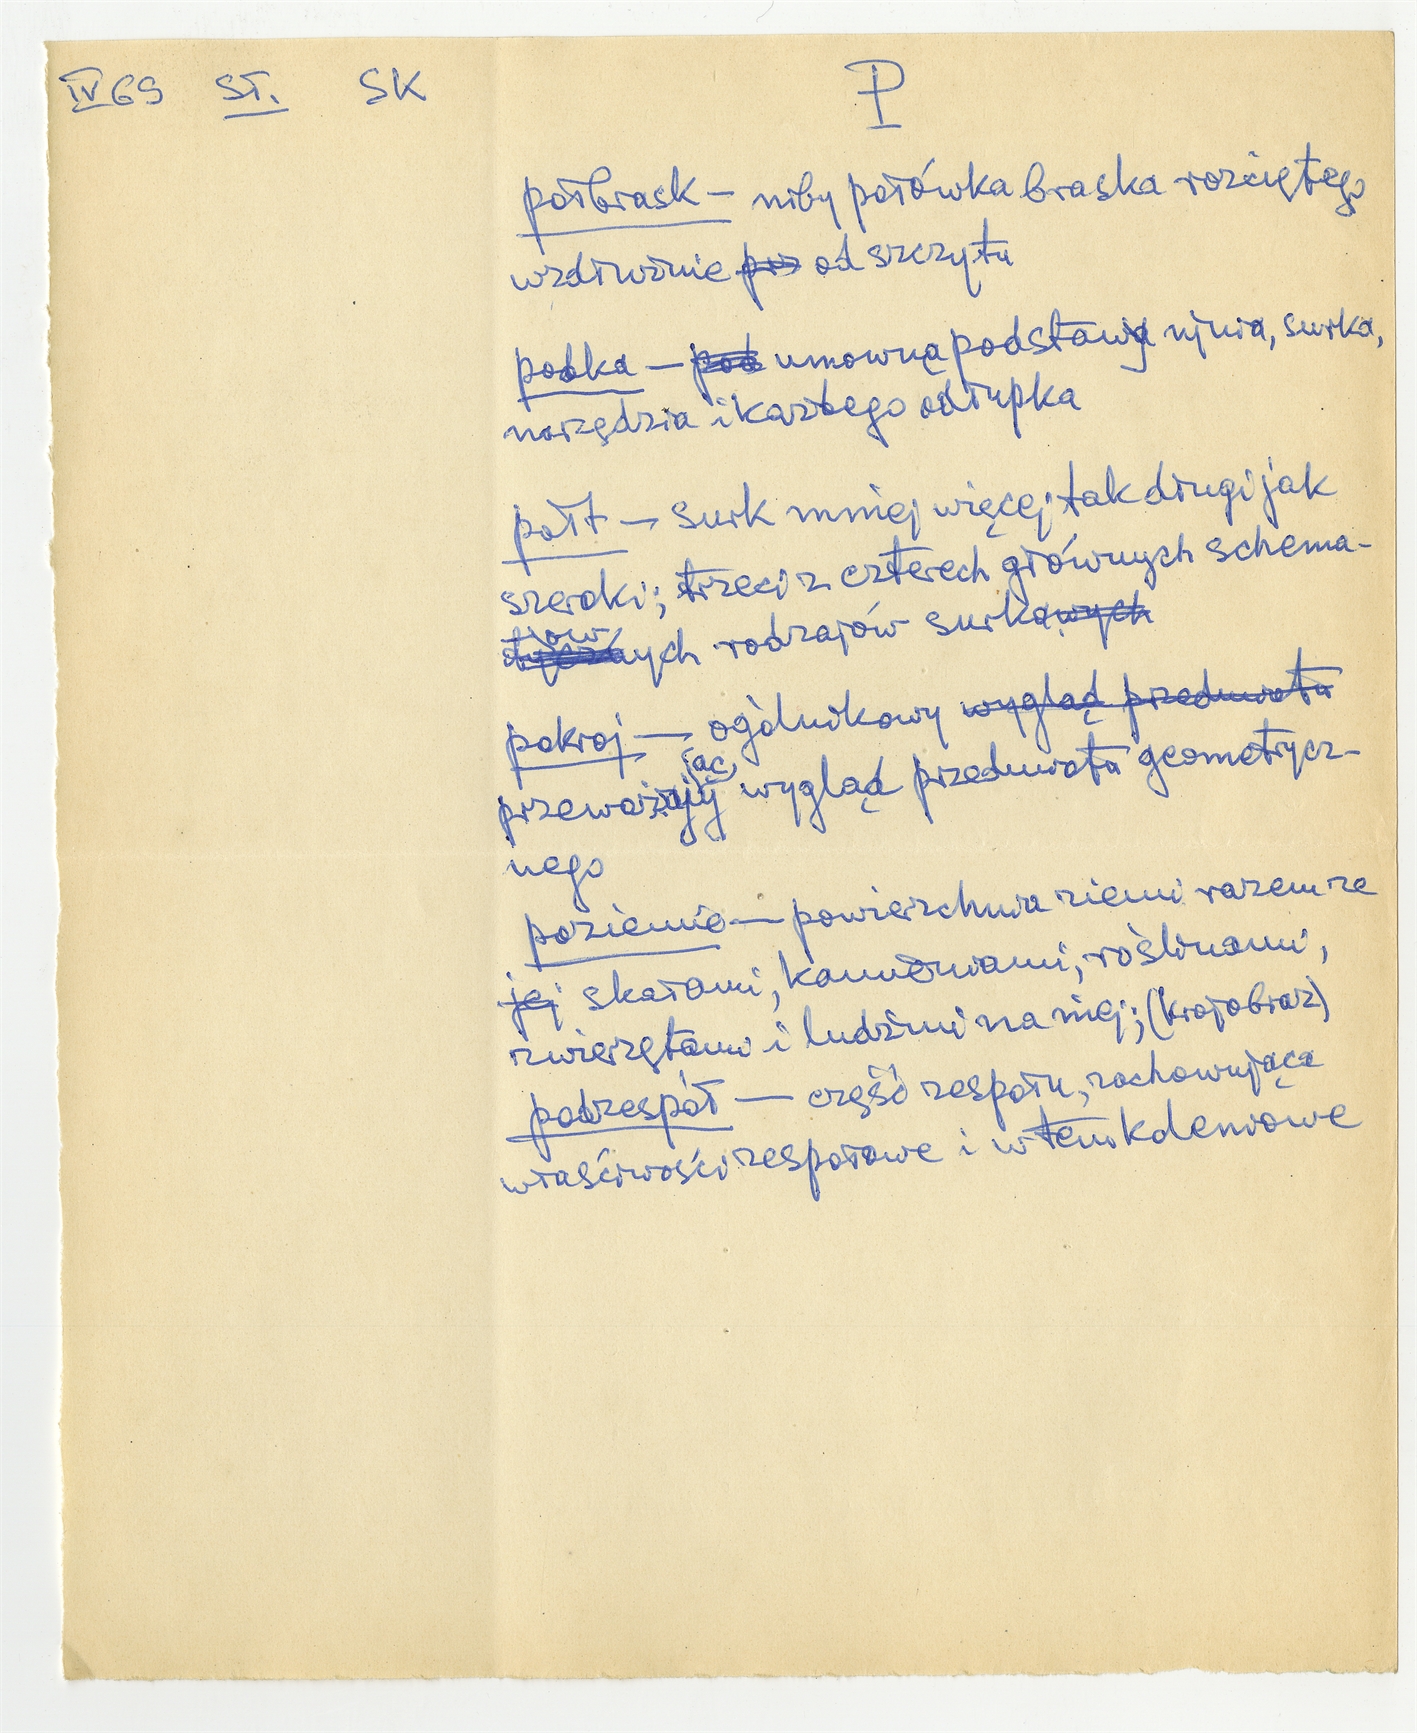 IV 69 ST. SK P
połbrask – niby połówka braska rozciętego
wzdłużnie od szczytu
podka – umowną podstawą njnia, surka,
narzędzia i każdego odłupka
połt – surk mniej więcej tak długi jak
szeroki; trzeci z czterech głównych schema-
tjowych rodzajów surka
pokroj – ogólnikowy wygląd przedmiotu
przeważający wygląd przedmiotu geometrycz-
nego
poziemie – powierzchnia ziemi razem ze
jej skałami, kamieniami, roślinami,
zwierzętami i ludźmi na niej; (krajobraz)
podzespół – część zespołu, zachowująca
właściwości zespołowe i w tem kdeniowe